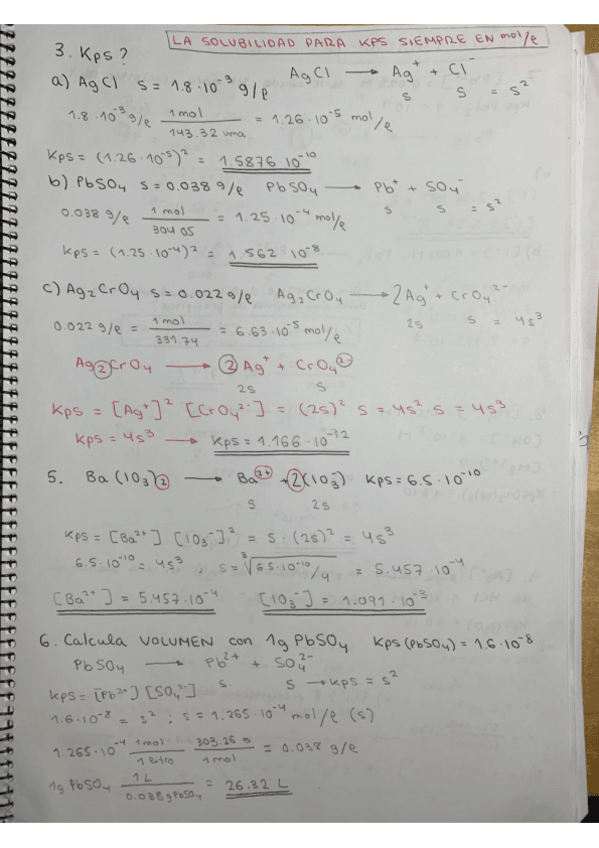 LA SOLUBILIDAD PARA KPS SIEMPRE EN mol/l
3. Kps?
a) AgCl s = 1.8·10⁻³ g/l AgCl → Ag⁺ + Cl⁻
s s = s²
1.8·10⁻³ g/l 1mol/143.32 uma = 1.26·10⁻⁵ mol/l
Kps = (1.26·10⁻⁵)² = 1.5876 10⁻¹⁰
b) PbSO₄ s = 0.038 g/l PbSO₄ → Pb⁺ + SO₄⁻
s s = s²
0.038 g/l 1mol/304.05 = 1.25·10⁻⁴ mol/l
Kps = (1.25·10⁻⁴)² = 1.562·10⁻⁸
c) Ag₂CrO₄ s = 0.022 g/l Ag₂CrO₄ → 2Ag⁺ + CrO₄²⁻
2s s = 4s³
0.022 g/l = 1mol/331.74 = 6.63·10⁻⁵ mol/l
Ag₂CrO₄ → 2 Ag⁺ + CrO₄²⁻
2s s
Kps = [Ag⁺]² [CrO₄²⁻] = (2s)² s = 4s² s = 4s³
Kps = 4s³ → Kps = 1.166·10⁻¹²
5. Ba(IO₃)₂ → Ba²⁺ + 2(IO₃⁻) Kps = 6.5·10⁻¹⁰
s 2s
Kps = [Ba²⁺] [IO₃⁻]² = s·(2s)² = 4s³
6.5·10⁻¹⁰ = 4s³ , s = ³√6.5·10⁻¹⁰/4 = 5.457·10⁻⁴
[Ba²⁺] = 5.457·10⁻⁴ [IO₃⁻] = 1.091·10⁻³
6. Calcula VOLUMEN con 1g PbSO₄ Kps (PbSO₄) = 1.6·10⁻⁸
PbSO₄ → Pb²⁺ + SO₄²⁻
s s → Kps = s²
Kps = [Pb²⁺] [SO₄²⁻]
1.6·10⁻⁸ = s² ; s = 1.265·10⁻⁴ mol/l (s)
1.265·10⁻⁴ 1mol/1 litro 303.26 g/1mol = 0.038 g/l
1g PbSO₄ 1L/0.038g PbSO₄ = 26.32 L